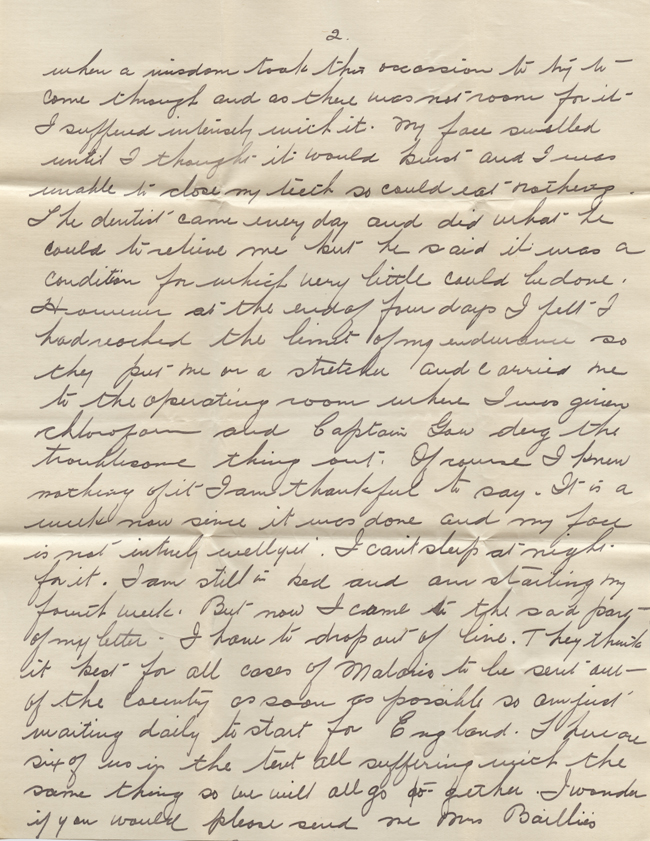 2.
when a wisdom took this occassion to try to
come through and as there was not room for it
I suffered intensely with it. My face swelled
until I thought it would burst and I was
unable to close my teeth so could eat nothing.
The dentist came every day and did what he
could to relieve me but he said it was a
condition for which very little could be done.
However at the end of four days I felt I
had reached the limit of my endurance so
they put me on a stretcher and carried me
to the operating room where I was given
chloroform and Captain Gow dug the
troublesome thing out. Of course I knew
nothing of it I am thankful to say. It is a
week now since it was done and my face
is not entirely well yet. I can't sleep at night
for it. I am still in bed and am starting my
fourth week. But now I came to the sad part
of my letter - I have to drop out of line. They think
it best for all cases of Malaria to be sent out
of the country as soon as possible so am just
waiting daily to start for England. There are
six of us in the tent all suffering with the
same thing so we will all go to-gether. I wonder
if you would please send me Mrs Baillies